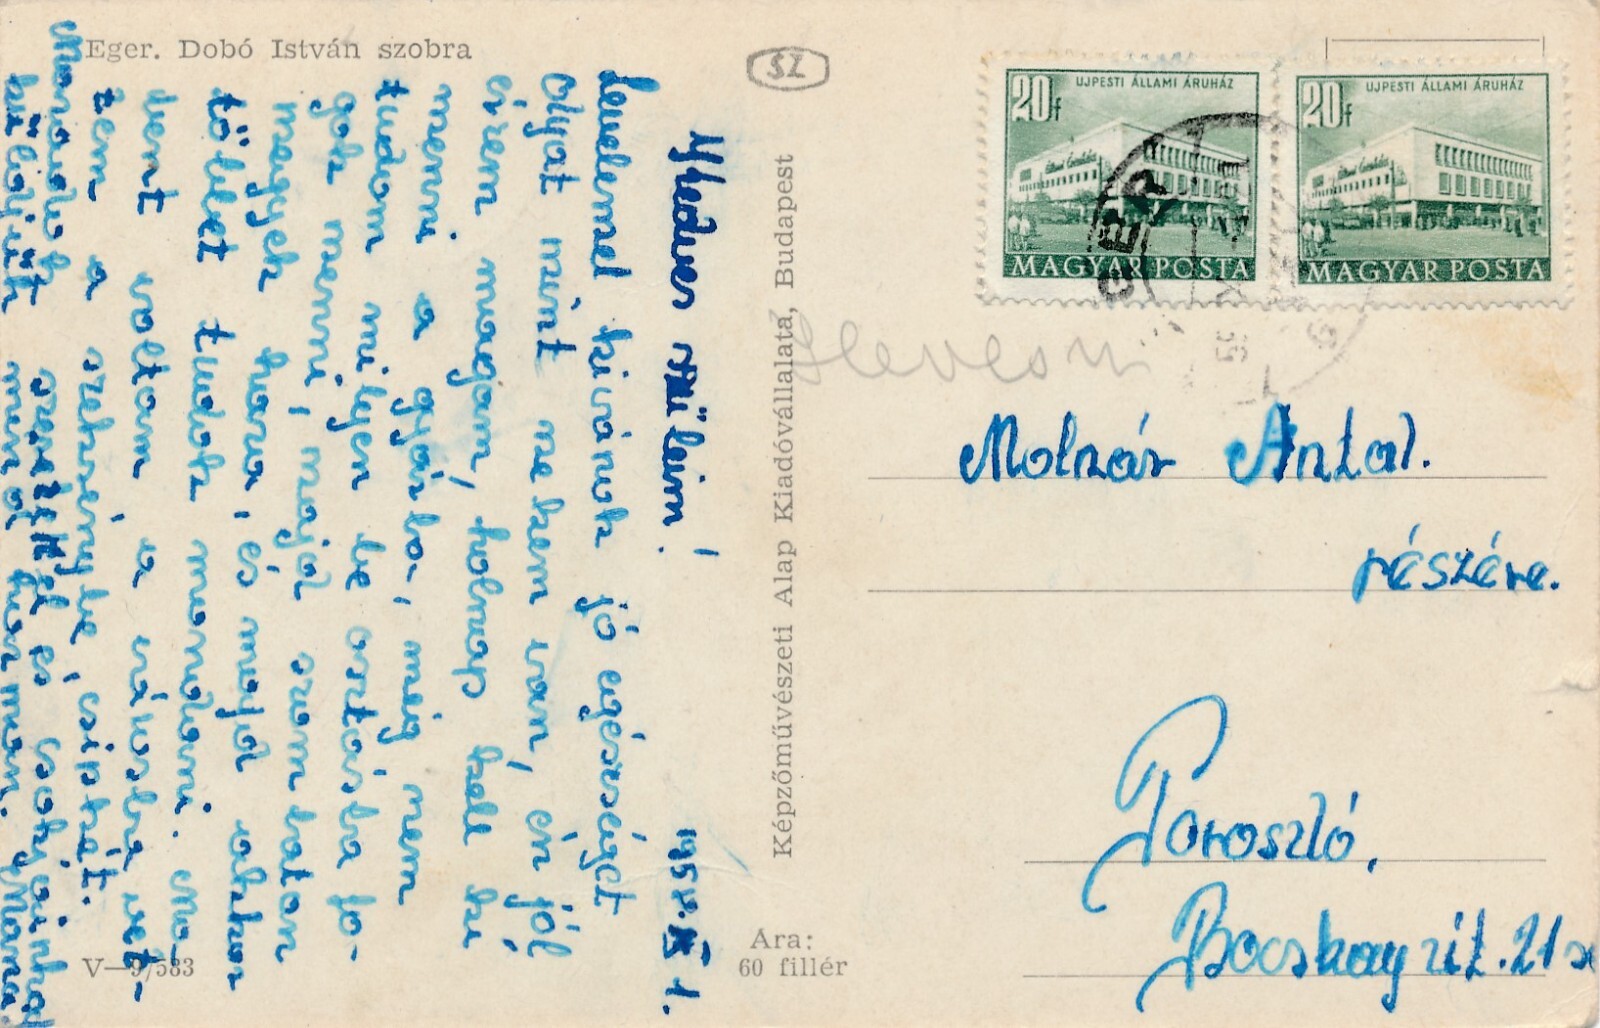 Eger. Dobó István szobra
SZ
20f
UJPESTI ÁLLAMI ÁRUHÁZ
MAGYAR POSTA
20f
UJPESTI ÁLLAMI ÁRUHÁZ
MAGYAR POSTA
EGER
Heves m
Molnár Antal.
részére.
Poroszló,
Bocskay út. 21 sz
Képzőművészeti Alap Kiadóvállalata, Budapest
Ára:
60 fillér
V—9/583
Kedves szüleim!
IX 1.
levelemel kívánok jó egésséget
Olyat mint nekem van, én jól
érzem magam, holnap kell ki
menni a gyárba, még nem
tudom milyen be osztásba fo-
gok menni, majd szombaton
megyek haza, és majd akkor
többet tudok mondani. Ma
bent voltam a városba vet-
tem a szekrénybe csipkét.
Maradok szerető és csókjainkat
küldjük mindhárman. Mária